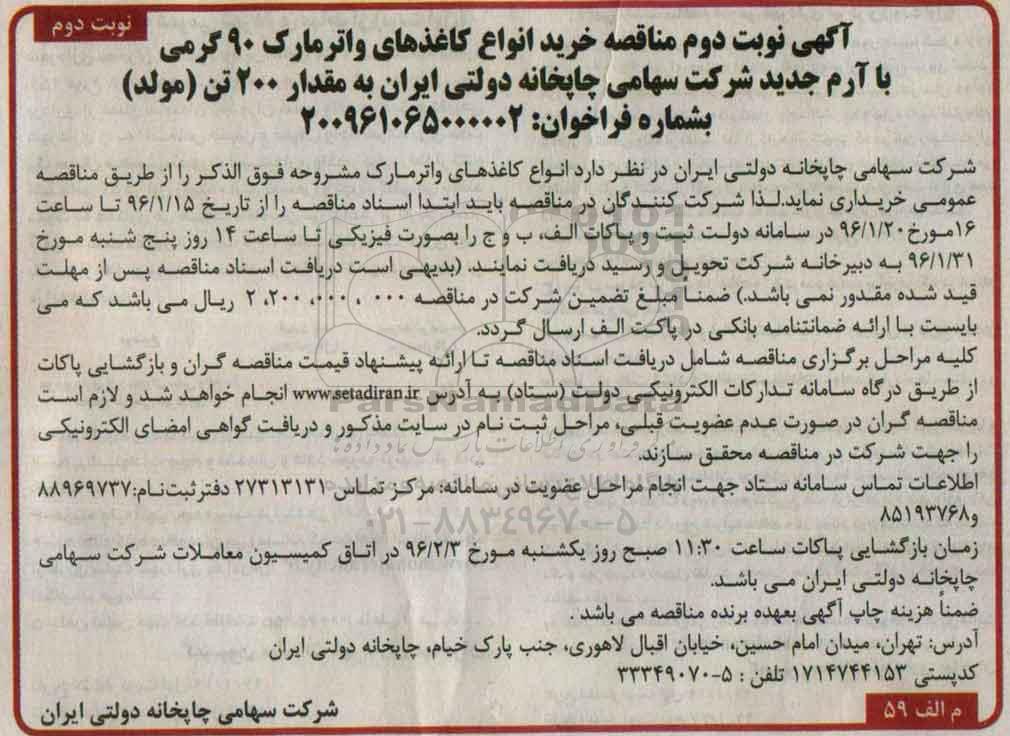 نوبت دوم
آگهی نوبت دوم مناقصه خرید انواع کاغذهای واترمارک ۹۰ گرمی
با آرم جدید شرکت سهامی چاپخانه دولتی ایران به مقدار ۲۰۰ تن (مولد)
بشماره فراخوان: ۲۰۰۹۶۱۰۶۵۰۰۰۰۰۲
شرکت سهامی چاپخانه دولتی ایران در نظر دارد انواع کاغذهای واترمارک مشروحه فوق الذکر را از طریق مناقصه
عمومی خریداری نماید.لذا شرکت کنندگان در مناقصه باید ابتدا اسناد مناقصه را از تاریخ ۹۶/۱/۱۵ تا ساعت
۱۶مورخ۹۶/۱/۲۰ در سامانه دولت ثبت و پاکات الف، ب و ج را بصورت فیزیکی تا ساعت ۱۴ روز پنج شنبه مورخ
۹۶/۱/۳۱ به دبیرخانه شرکت تحویل و رسید دریافت نمایند. (بدیهی است دریافت اسناد مناقصه پس از مهلت
قید شده مقدور نمی باشد.) ضمنا مبلغ تضمین شرکت در مناقصه ۲،۲۰۰،۰۰۰،۰۰۰ ریال می باشد که می
بایست با ارائه ضمانتنامه بانکی در پاکت الف ارسال گردد.
کلیه مراحل برگزاری مناقصه شامل دریافت اسناد مناقصه تا ارائه پیشنهاد قیمت مناقصه گران و بازگشایی پاکات
از طریق درگاه سامانه تدارکات الکترونیکی دولت (ستاد) به آدرس www.setadiran.ir انجام خواهد شد و لازم است
مناقصه گران در صورت عدم عضویت قبلی، مراحل ثبت نام در سایت مذکور و دریافت گواهی امضای الکترونیکی
را جهت شرکت در مناقصه محقق سازند.
اطلاعات تماس سامانه ستاد جهت انجام مراحل عضویت در سامانه: مرکز تماس ۲۷۳۱۳۱۳۱ دفتر ثبت‌نام:۸۸۹۶۹۷۳۷
و۸۵۱۹۳۷۶۸
زمان بازگشایی پاکات ساعت ۱۱:۳۰ صبح روز یکشنبه مورخ ۹۶/۲/۳ در اتاق کمیسیون معاملات شرکت سهامی
چاپخانه دولتی ایران می باشد.
ضمناً هزینه چاپ آگهی بعهده برنده مناقصه می باشد .
آدرس: تهران، میدان امام حسین، خیابان اقبال لاهوری، جنب پارک خیام، چاپخانه دولتی ایران
کدپستی ۱۷۱۴۷۴۴۱۵۳ تلفن : ۵-۳۳۳۴۹۰۷۰
شرکت سهامی چاپخانه دولتی ایران
م الف ۵۹
ParsNamadData
۰۲۱-۸۸۳۴۹۶۷۰-۵